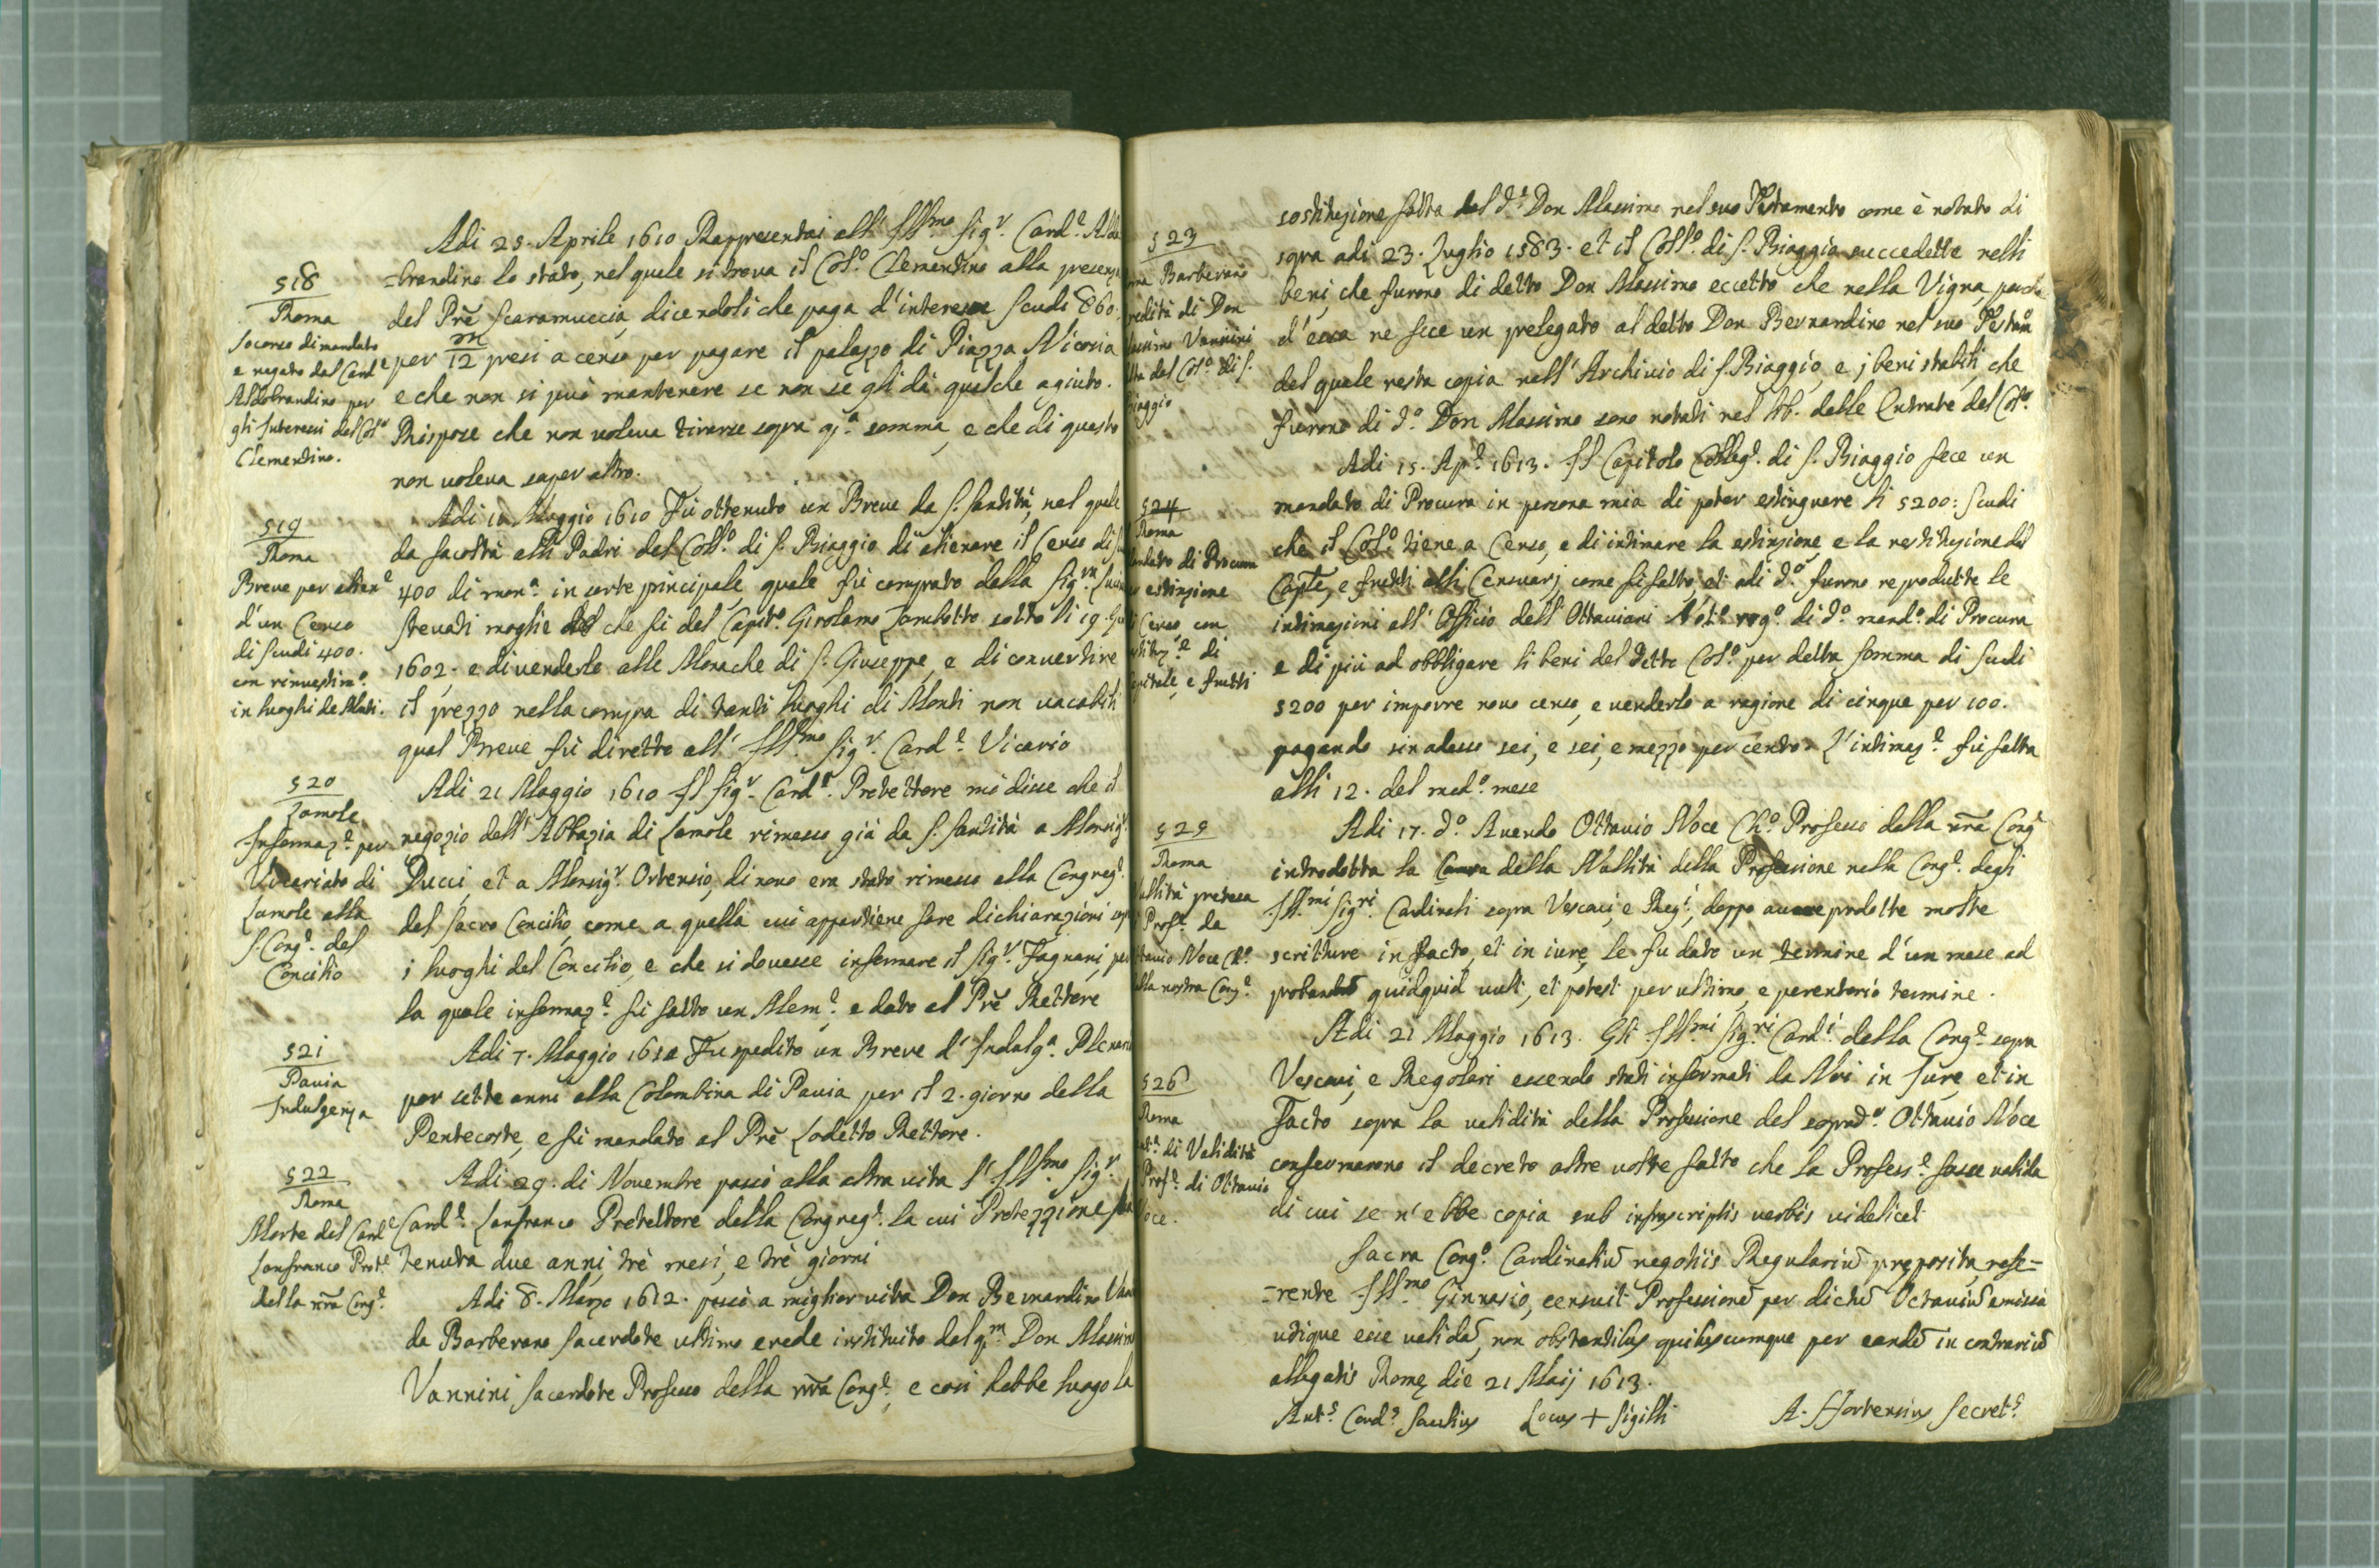 Adi 25. Aprile 1610 Rappresentai all' Ill.mo Sig.r Card.e Aldo
=brandino lo stato, nel quale si trova il Col.o Clementino alla presenza
del Prẽ Scaramuccia, dicendoli che paga d'interesse scudi 860.
per 12 m presi a censo per pagare il palazzo di Piazza Nicosia
e che non si può mantenere se non se gli dà qualche agiuto.
Rispose che non voleva tirarse sopra q.a somma, e che di questo
non voleva saper altro.
518
Roma
Socorso dimandato
e negato dal Card.e
Aldobrandino per
gli Interessi del Col.o
Clementino.
Adi 11 Maggio 1610 Fù ottenuto un Breve da S. Santità, nel quale
da facoltà alli Padri del Coll.o di S. Biaggio di alienare il Censo di
400 di mon.a in sorte principale, quale fù comprato dalla Sig.ra
Stevadi moglie che fù del Capit.o Girolamo Zambotto sotto li 19.
1602. e di venderlo alle Monache di S. Giuseppe, e di convertire
il prezzo nella compra di tanti luoghi di Monti non vacabili
qual Breve fù diretto all' Ill.mo Sig.r Card.e Vicario
519
Roma
Breve per alien.e
d'un Censo
di scudi 400.
con rinvestim.o
in luoghi de Monti.
Adi 21 Maggio 1610 Il Sig.r Card.e Protettore mi disse che il
negozio dell' Abbazia di Lamole rimesso già da S. Santità a Monsig.r
Ducci, et a Monsig.r Ortensio, di novo era stato rimesso alla Congreg.e
del Sacro Concilio, come a quella cui appartiene fare dichiarazioni sop
i luoghi del Concilio, e che si dovesse informare il Sig.r Fagnani, per
la quale informaz.e fù fatto un Mem.e, e dato al Prẽ Rettore
520
Lamole
Informaz.e per
Vicariato di
Lamole alla
S. Cong.e del
Concilio
Adi 7. Maggio 1610 Fu spedito un Breve d' Indulg.a Plenari
per sette anni alla Colombina di Pavia per il 2. giorno della
Pentecoste, e fù mandato al Prẽ Lodetto Rettore.
521
Pavia
Indulgenza
Adi 29. di Novembre passò alla altra vita l' Ill.mo Sig.r
Card.e Lanfranco Protettore della Congreg.e la cui Protezzione
tenuta due anni, trè mesi, e trè giorni
522
Roma
Morte del Card.e
Lanfranco Prot.e
della nrã Cong.e
Adi 8. Marzo 1612. passò a miglior vita Don Bernardino Van
da Barberano Sacerdote ultimo erede instituito dal q.m Don Massimo
Vannini Sacerdote Professo della nrã Cong.e, e così hebbe luogo la
523
ma Barberano
redità di Don
assimo Vannini
tta dal Col.o di S.
iaggio
sostituzione fatta dal d.o Don Massimo nel suo Testamento come è notato di
sopra adi 23. Luglio 1583. et il Coll.o di S. Biaggio succedette nelli
beni, che furono di detto Don Massimo eccetto che nella Vigna, perche
d'essa ne fece un prelegato al detto Don Bernardino nel suo Testam.o
del quale resta copia nell' Archivio di S. Biaggio, e i beni stabili, che
furono di d.o Don Massimo sono notati nel lib. delle Entrate del Col.o
524
Roma
andato di Procura
estinzione
Censo con
di
pitale, e frutti
Adi 15. Ap.e 1613. Il Capitolo Colleg.e di S. Biaggio fece un
mandato di Procura in persona mia di poter estinguere li 5200: scudi
che il Col.o tiene a Censo, e di intimare la estinzione, e la restituzione del
Capit.e, e frutti alli Censuarj come fù fatto, et adi d.o furono reprodutte le
intimazioni all' Officio dell' Ottaviani Not.o rog.o di d.o mand.o di Procura
e di più ad obbligare li beni del detto Col.o per detta somma di scudi
5200 per imporre novo censo, e venderlo a ragione di cinque per 100.
pagando sin adesso sei, e sei, e mezzo per cento. L'intimaz.e fù fatta
alli 12. del med.o mese
525
Roma
ullità pretesa
Prof.e da
tavio Noce Ch.o
lla nostra Cong.e
Adi 17. d.o Avendo Ottavio Noce Ch.o Professo della nrã Cong.e
introdotta la Causa della Nullità della Professione nella Cong.e degli
Ill.mi Sig.ri Cardinali sopra Vescovi, e Reg.i, doppo avere prodotte molte
scritture in facto, et in iure, le fu dato un termine d'un mese ad
probandũ quidquid vult, et potest per ultimo, e perentorio termine.
526
Roma
di Validità
Prof.e di Ottavio
oce.
Adi 21 Maggio 1613. Gli Ill.mi Sig.ri Card.i della Cong.e sopra
Vescovi, e Regolari essendo stati informati da Noi in Jure, et in
Facto sopra la validità della Professione del soprad.o Ottavio Noce
confermarono il decreto altre volte fatto che la Profess.e fosse valida
di cui se n'ebbe copia sub infrascriptis verbis videlicet
Sacra Cong.o Cardinaliũ negotiis Regulariũ pręposita, refe=
=rente Ill.mo Ginnasio, censuit Professionẽ per dictũ Octaviũ emissã
utique esse validã, non obstantibus quibuscumque per eundẽ in contrariũ
allegatis Romę die 21 Maij 1613.
Ant.s Card.s Saulius Locus + Sigilli A. Hortensius Secret.s